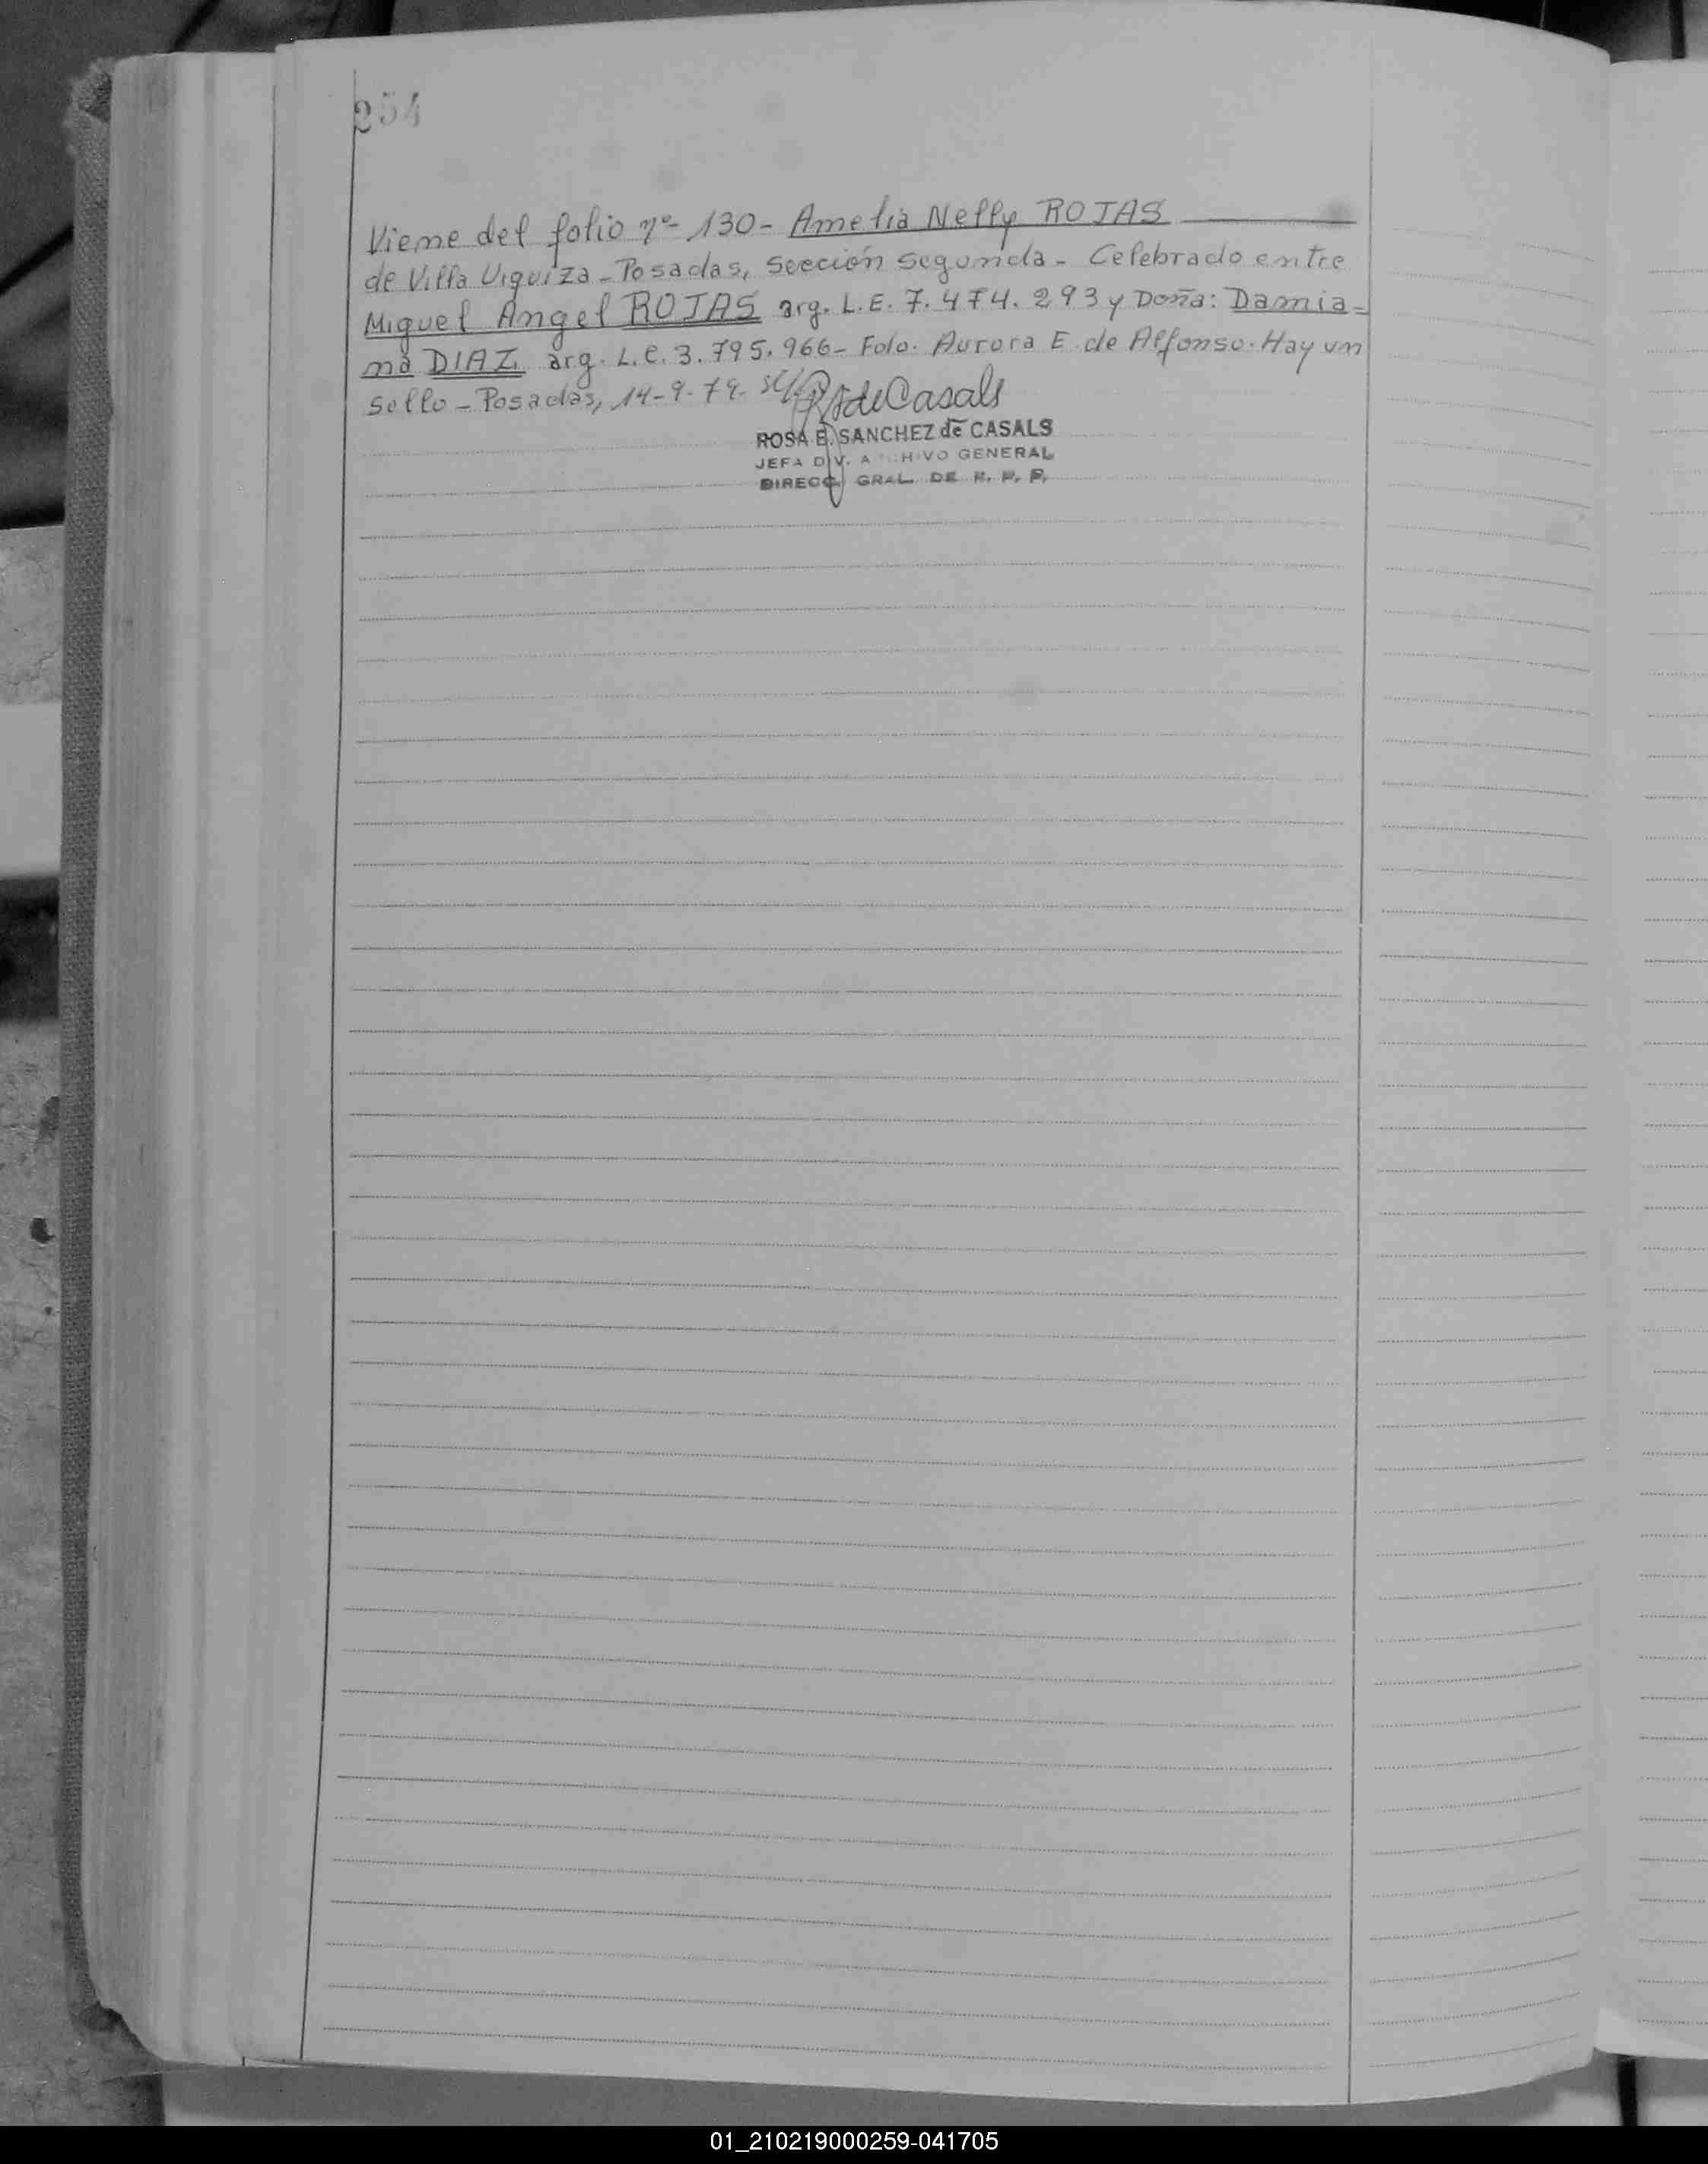 254
Viene del folio nº 130 - Amelia Nelly ROJAS
de Villa Urquiza - Posadas, Sección Segunda - Celebrado entre
Miguel Angel ROJAS arg. L.E. 7.474.293 y Doña: Damia-
na DIAZ arg. L.C. 3.795.966 - Fdo. Aurora E. de Alfonso. Hay un
Sello - Posadas, 14-9-79.
RSdeCasals
ROSA E. SANCHEZ de CASALS
JEFA DIV. ARCHIVO GENERAL
DIRECC. GRAL. DE R. P. P.
01_210219000259-041705